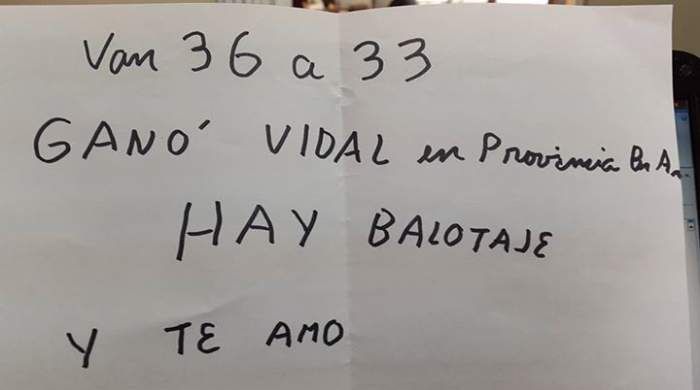 Van 36 a 33
GANÓ VIDAL en Provincia Bs A..
HAY BALOTAJE
Y TE AMO